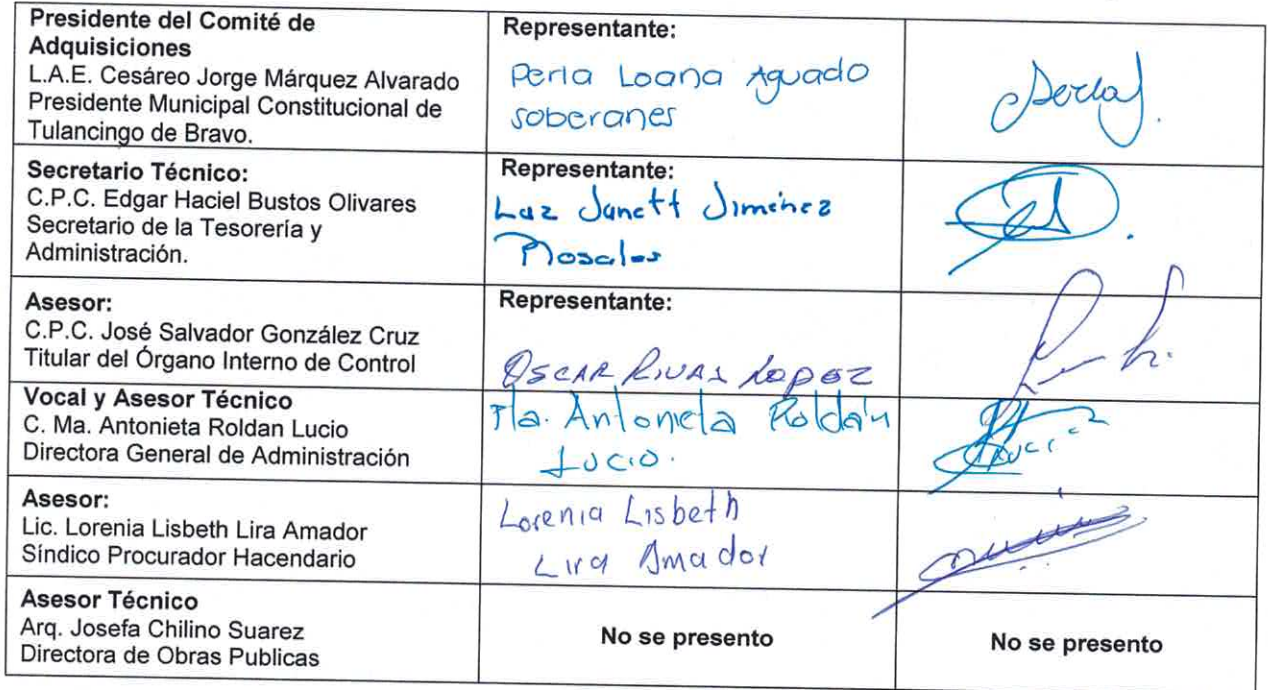 Presidente del Comité de
Adquisiciones
L.A.E. Cesáreo Jorge Márquez Alvarado
Presidente Municipal Constitucional de
Tulancingo de Bravo.
Representante:
Perla Loana Aguado
soberanes
Perla
Secretario Técnico:
C.P.C. Edgar Haciel Bustos Olivares
Secretario de la Tesorería y
Administración.
Representante:
Luz Janett Jimenez
Rosales
Asesor:
C.P.C. José Salvador González Cruz
Titular del Órgano Interno de Control
Representante:
OSCAR RIVAS LOPEZ
Vocal y Asesor Técnico
C. Ma. Antonieta Roldan Lucio
Directora General de Administración
Ma. Antonieta Roldán
Lucio.
Asesor:
Lic. Lorenia Lisbeth Lira Amador
Síndico Procurador Hacendario
Lorenia Lisbeth
Lira Amador
Asesor Técnico
Arq. Josefa Chilino Suarez
Directora de Obras Publicas
No se presento
No se presento